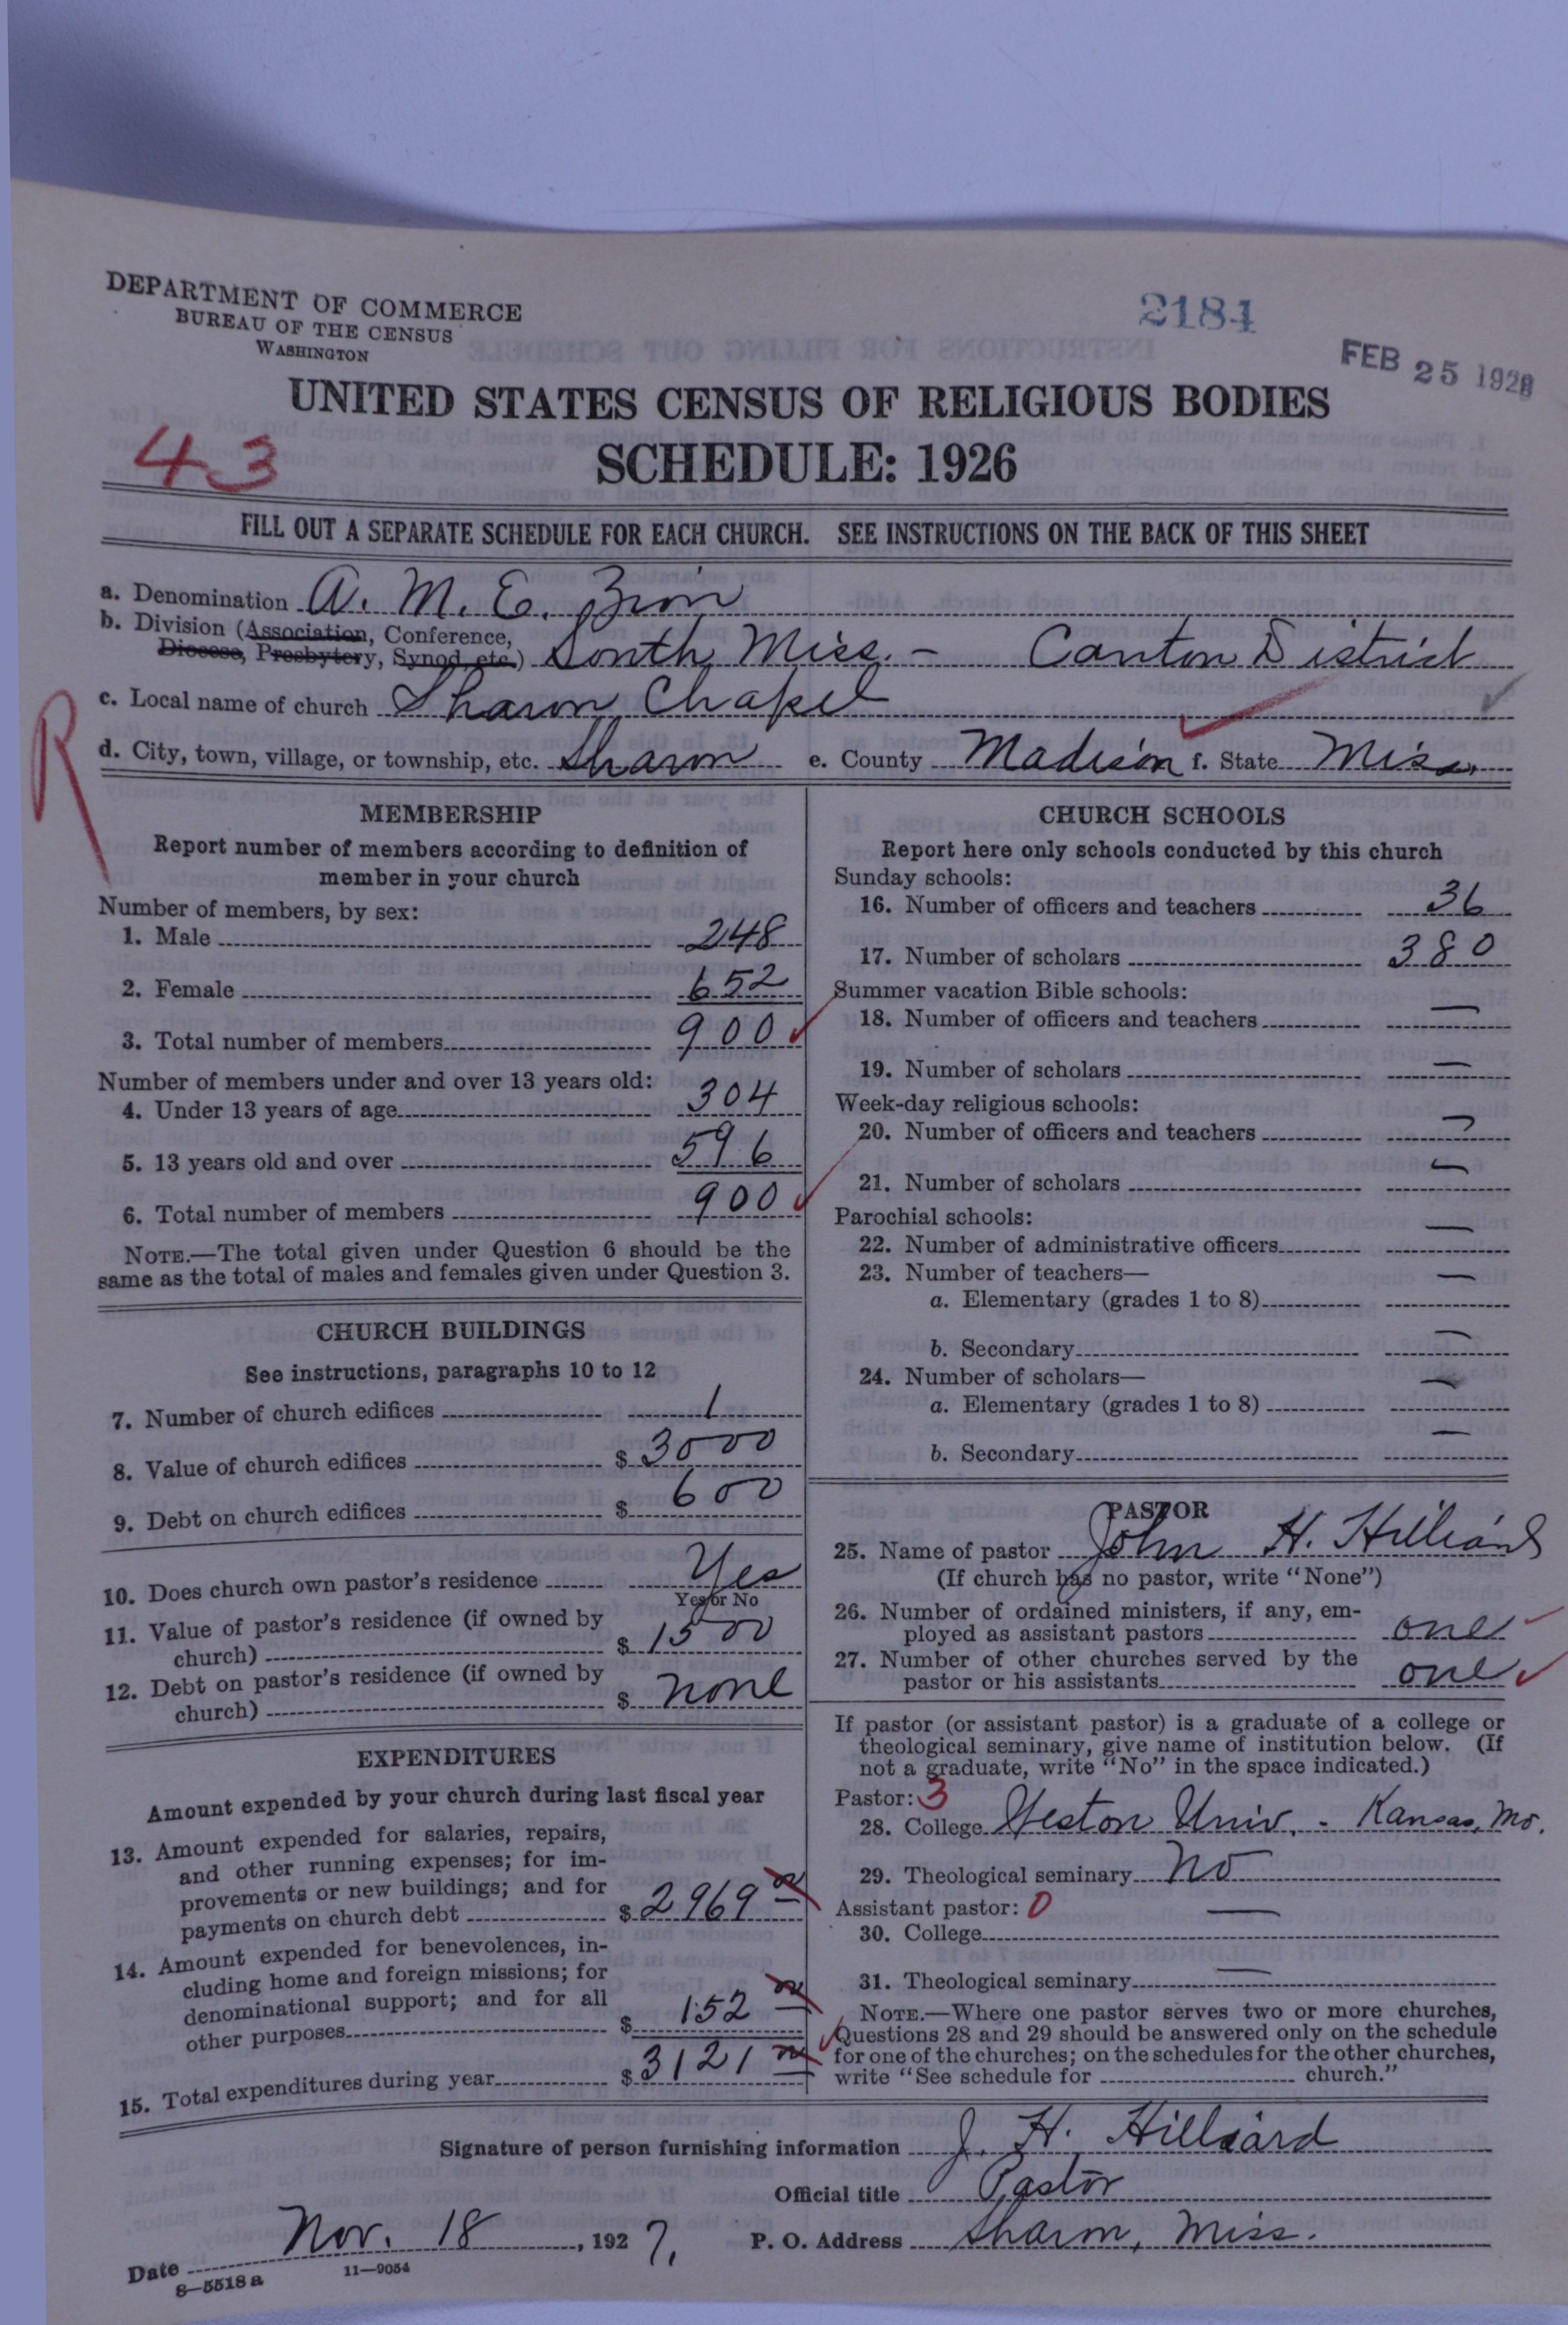 DEPARTMENT OF COMMERCE
BUREAU OF THE CENSUS
WASHINGTON
2184
FEB 25 1928
UNITED STATES CENSUS OF RELIGIOUS BODIES
43
SCHEDULE: 1926
FILL OUT A SEPARATE SCHEDULE FOR EACH CHURCH. SEE INSTRUCTIONS ON THE BACK OF THIS SHEET
a. Denomination A. M. E. Zion
b. Division (Association, Conference,
Diocese, Presbytery, Synod, etc.) South Miss. - Canton District
c. Local name of church Sharon Chapel
R
d. City, town, village, or township, etc. Sharon e. County Madison f. State Miss.
MEMBERSHIP
Report number of members according to definition of
member in your church
Number of members, by sex:
1. Male 248
2. Female 652
3. Total number of members 900
Number of members under and over 13 years old:
4. Under 13 years of age 304
5. 13 years old and over 596
6. Total number of members 900
NOTE.—The total given under Question 6 should be the
same as the total of males and females given under Question 3.
CHURCH BUILDINGS
See instructions, paragraphs 10 to 12
7. Number of church edifices 1
8. Value of church edifices $ 3000
9. Debt on church edifices $ 600
10. Does church own pastor's residence Yes
Yes or No
11. Value of pastor's residence (if owned by
church) $ 1500
12. Debt on pastor's residence (if owned by
church) $ none
EXPENDITURES
Amount expended by your church during last fiscal year
13. Amount expended for salaries, repairs,
and other running expenses; for im-
provements or new buildings; and for
payments on church debt $ 2969 00
14. Amount expended for benevolences, in-
cluding home and foreign missions; for
denominational support; and for all
other purposes $ 152 00
15. Total expenditures during year $ 3121 00
CHURCH SCHOOLS
Report here only schools conducted by this church
Sunday schools:
16. Number of officers and teachers 36
17. Number of scholars 380
Summer vacation Bible schools:
18. Number of officers and teachers —
19. Number of scholars —
Week-day religious schools:
20. Number of officers and teachers —
21. Number of scholars —
Parochial schools:
22. Number of administrative officers —
23. Number of teachers—
a. Elementary (grades 1 to 8) —
b. Secondary —
24. Number of scholars—
a. Elementary (grades 1 to 8) —
b. Secondary —
PASTOR
25. Name of pastor John H. Hilliard
(If church has no pastor, write "None")
26. Number of ordained ministers, if any, em-
ployed as assistant pastors one
27. Number of other churches served by the
pastor or his assistants one
If pastor (or assistant pastor) is a graduate of a college or
theological seminary, give name of institution below. (If
not a graduate, write "No" in the space indicated.)
Pastor: 3
28. College Univ. - Kansas, Mo.
29. Theological seminary No
Assistant pastor: 0
30. College —
31. Theological seminary —
NOTE.—Where one pastor serves two or more churches,
Questions 28 and 29 should be answered only on the schedule
for one of the churches; on the schedules for the other churches,
write "See schedule for church."
Signature of person furnishing information J. H. Hilliard
Official title Pastor
Date Nov. 18, 1927. P. O. Address Sharon, Miss.
8—5518 a 11—9054